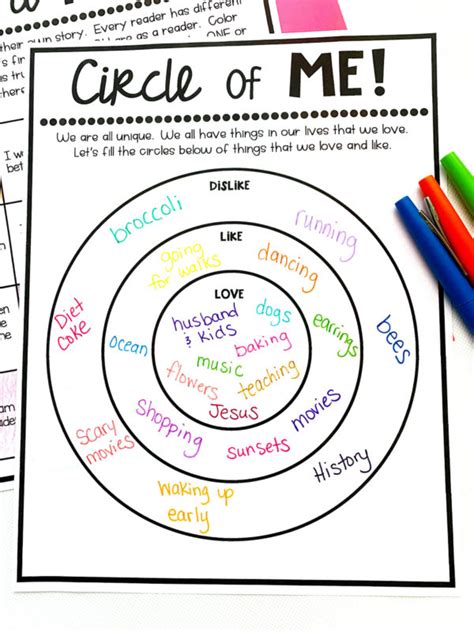 their own story. Every reader has different
Color
as a reader.
ONE or
CIRCLE OF ME!
WE ARE ALL UNIQUE. WE ALL HAVE THINGS IN OUR LIVES THAT WE LOVE.
LET'S FILL THE CIRCLES BELOW OF THINGS THAT WE LOVE AND LIKE.
DISLIKE
broccoli
running
LIKE
going
for walks
dancing
LOVE
husband
& kids
dogs
Diet
Coke
ocean
baking
earrings
bees
music
flowers
teaching
Jesus
shopping
movies
scary
movies
sunsets
History
waking up
early
I w
bet
am